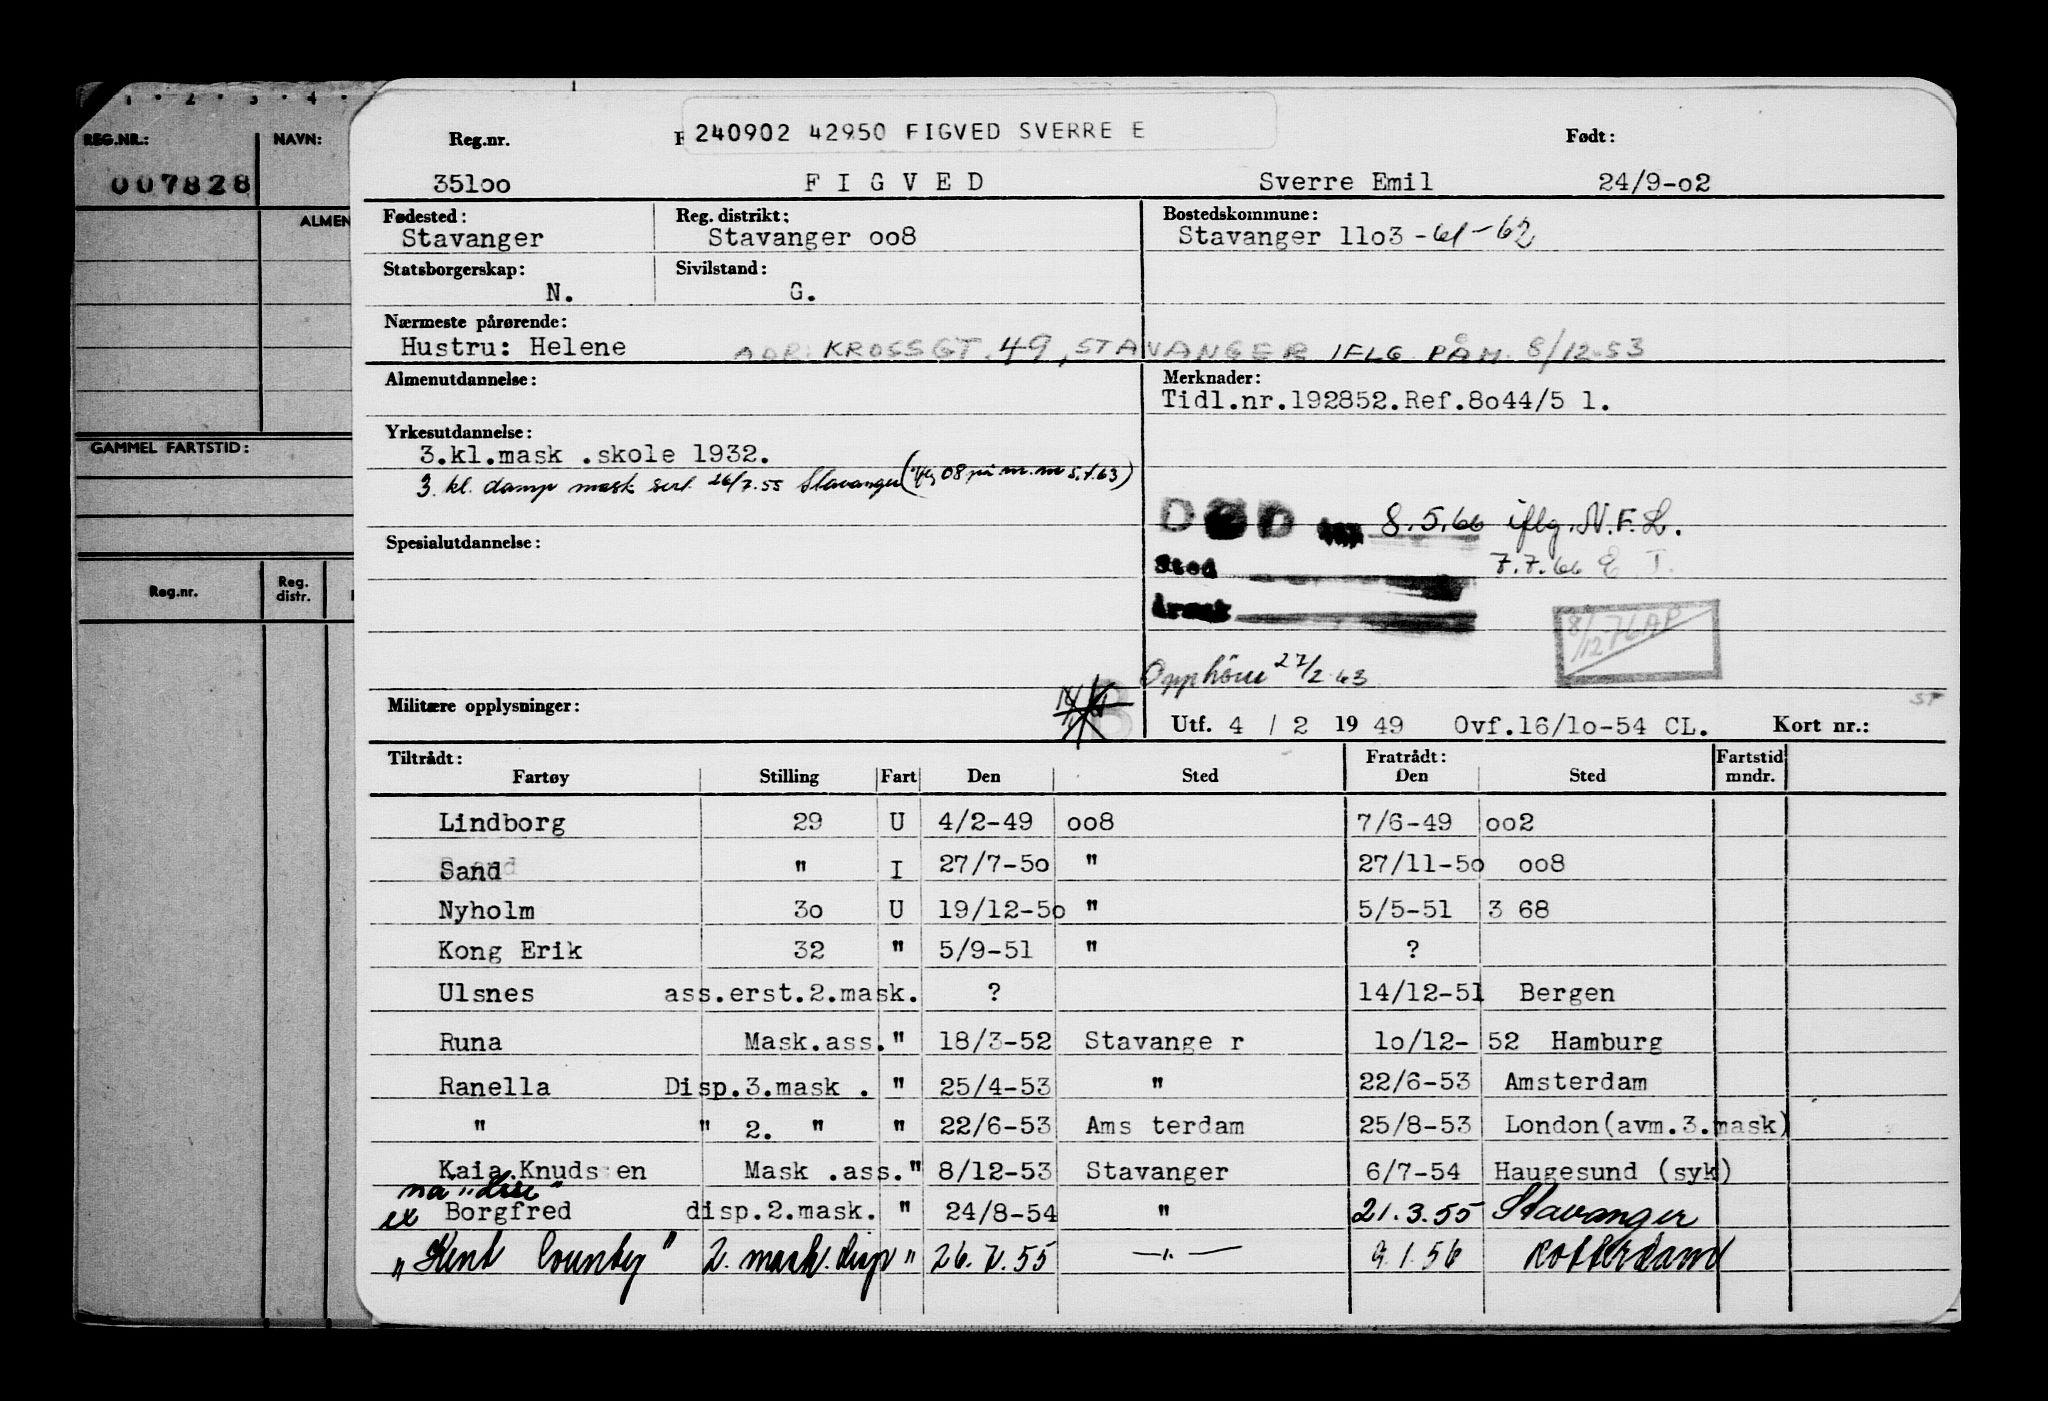 1 · 2 · 3 · 4 ·
REG.NR.: NAVN:
007828
ALMEN
GAMMEL FARTSTID:
Reg.nr. Reg. distr.
240902 42950 FIGVED SVERRE E
Reg.nr. Født:
35loo F I G V E D Sverre Emil 24/9-o2
Fødested: Reg. distrikt: Bostedskommune:
Stavanger Stavanger oo8 Stavanger llo3 - 61-62
Statsborgerskap: Sivilstand:
N. G.
Nærmeste pårørende:
Hustru: Helene ADR: KROSSGT. 49, STAVANGER IFLG. PÅM. 8/12-53
Almenutdannelse: Merknader:
Tidl.nr.192852.Ref.8o44/5 l.
Yrkesutdannelse:
3.kl.mask .skole 1932.
3. kl. damp mask sert. 26/7.55 Stavanger (iflg 08 på m.m 5.1.63)
DØD 8.5.66 iflg. N.F.L.
Spesialutdannelse:
Sted 7.7.66 E. T.
Årsak
8/12 76 AP
Opphører 27/2 63
Militære opplysninger:
ST
Utf. 4 / 2 19 49 Ovf.16/lo-54 CL. Kort nr.:
Tiltrådt: Fratrådt: Fartstid
Fartøy Stilling Fart Den Sted Den Sted mndr.
Lindborg 29 U 4/2-49 oo8 7/6-49 oo2
Sand " I 27/7-5o " 27/11-5o oo8
Nyholm 3o U 19/12-5o " 5/5-51 3 68
Kong Erik 32 " 5/9-51 " ?
Ulsnes ass.erst.2.mask. ? 14/12-51 Bergen
Runa Mask.ass. " 18/3-52 Stavange r lo/12- 52 Hamburg
Ranella Disp.3.mask . " 25/4-53 " 22/6-53 Amsterdam
" " 2. " " 22/6-53 Ams terdam 25/8-53 London(avm.3.mask)
Kaia Knudsen Mask .ass. " 8/12-53 Stavanger 6/7-54 Haugesund (syk)
nå "Lise"
ex Borgfred disp.2.mask. " 24/8-54 " 21.3.55 Stavanger
"Kent County" 2. mask. disp " 26.7.55 —"— 9.1.56 Rotterdam